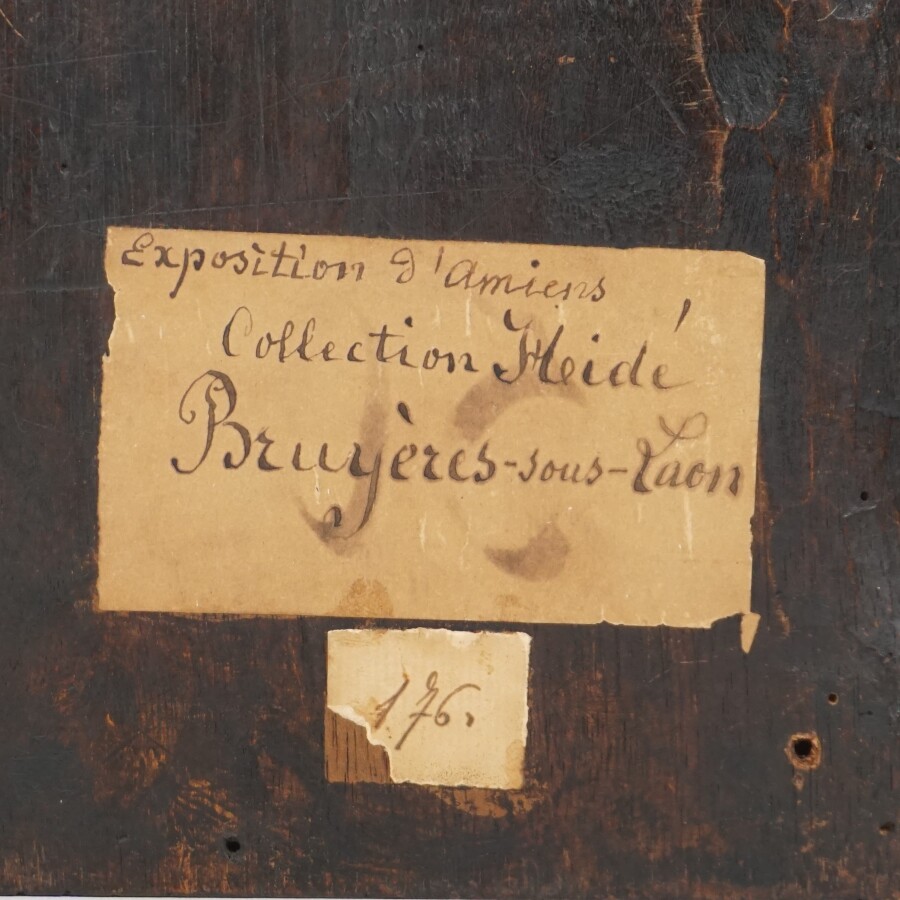 Exposition d'Amiens
Collection Heidé
Bruyères-sous-Laon
176.